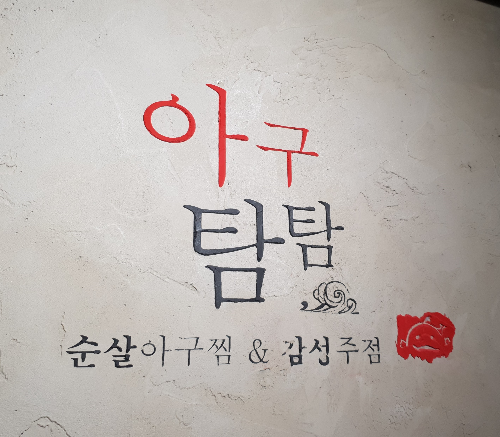 아구
탐탐
순살아구찜 & 감성주점